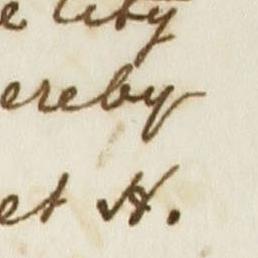 e City
ereby
et H.